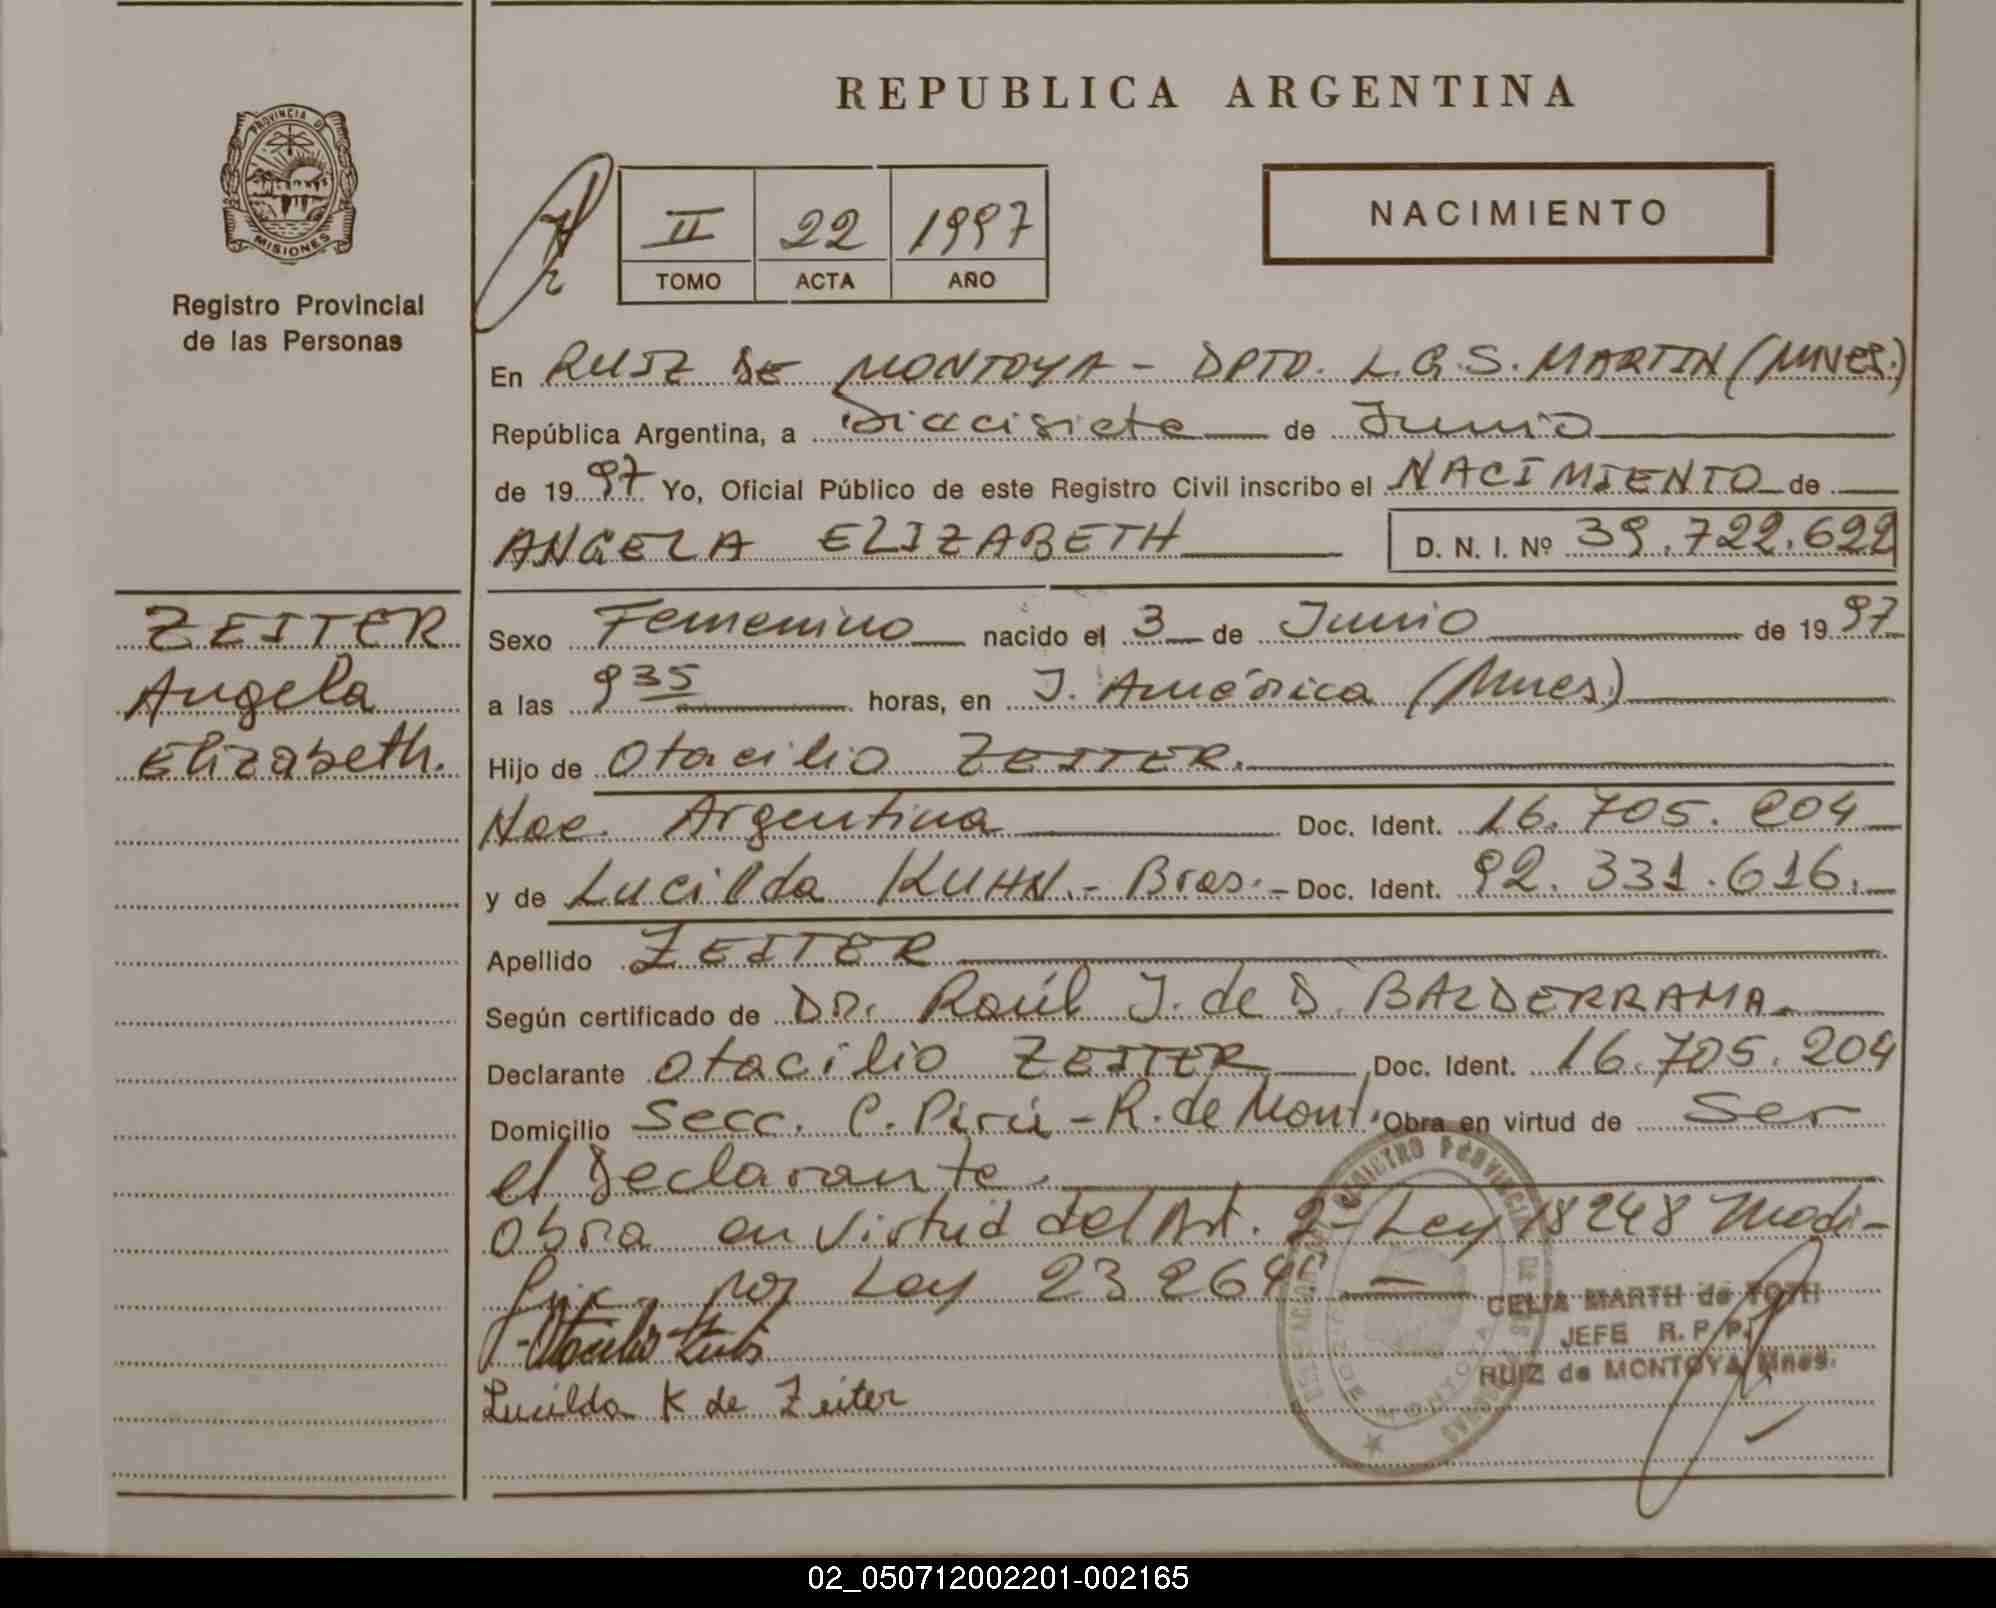 REPUBLICA ARGENTINA
PROVINCIA D
MISIONES
Registro Provincial
de las Personas
II 22 1997
TOMO ACTA AÑO
NACIMIENTO
En RUIZ DE MONTOYA - DPTO. L.G.S. MARTIN (MNES.)
República Argentina, a Diecisiete de Junio
de 1997 Yo, Oficial Público de este Registro Civil inscribo el NACIMIENTO de
ANGELA ELIZABETH D. N. I. Nº 39.722.622
ZEITER
Angela
Elizabeth.
Sexo Femenino nacido el 3 de Junio de 1997
a las 9 35 horas, en J. América (Mnes.)
Hijo de Otacilio ZEITER.
Nac. Argentina Doc. Ident. 16.705.204
y de Lucilda KUHN.- Bras.- Doc. Ident. 92.331.616.
Apellido ZEITER
Según certificado de DR. Raúl J. de D. BALDERRAMA
Declarante Otacilio ZEITER Doc. Ident. 16.705.204
Domicilio Secc. C. Pirú - R. de Mont. Obra en virtud de Ser
el Declarante.
Obra en virtud del Art. 2- Ley 18248 Modi-
fic. por Ley 23264
Lucilda K de Zeiter
CELIA MARTH de TOTH
JEFE R.P.P.
RUIZ de MONTOYA Mnes.
REGISTRO PROVINCIAL DE LAS PERSONAS
DE MONTOYA
02_050712002201-002165